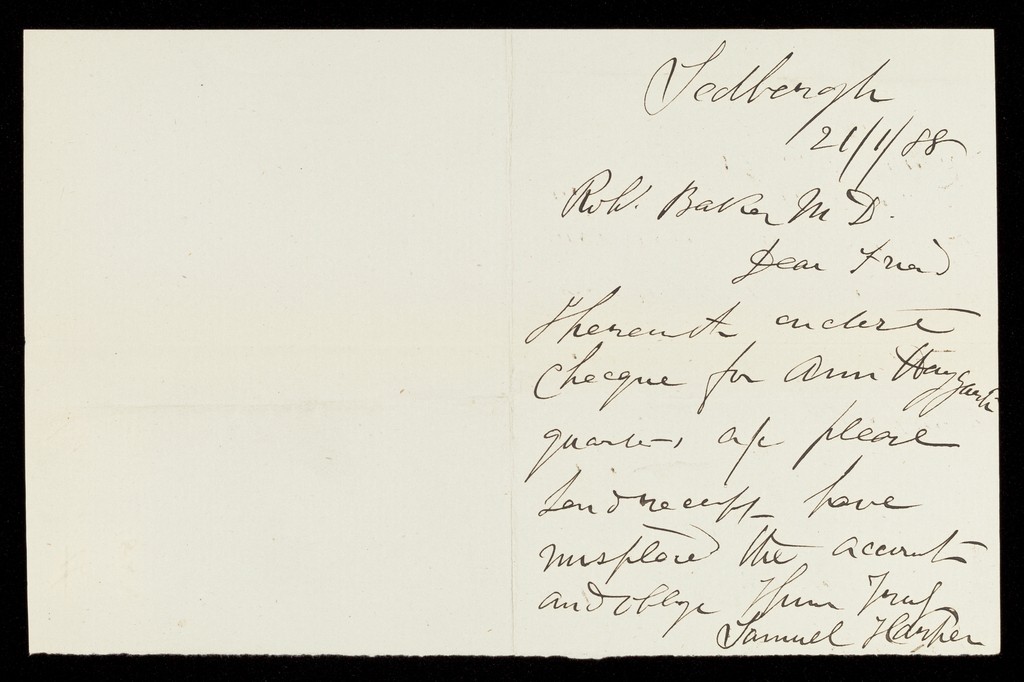 Sedbergh
21/1/88
Robt. Baker M D.
Dear Friend
Therewith
Checque for Ann Haygarth
quarters a/c please
send receipt have
misplaced the account
and oblige Thine Truly
Samuel Harper